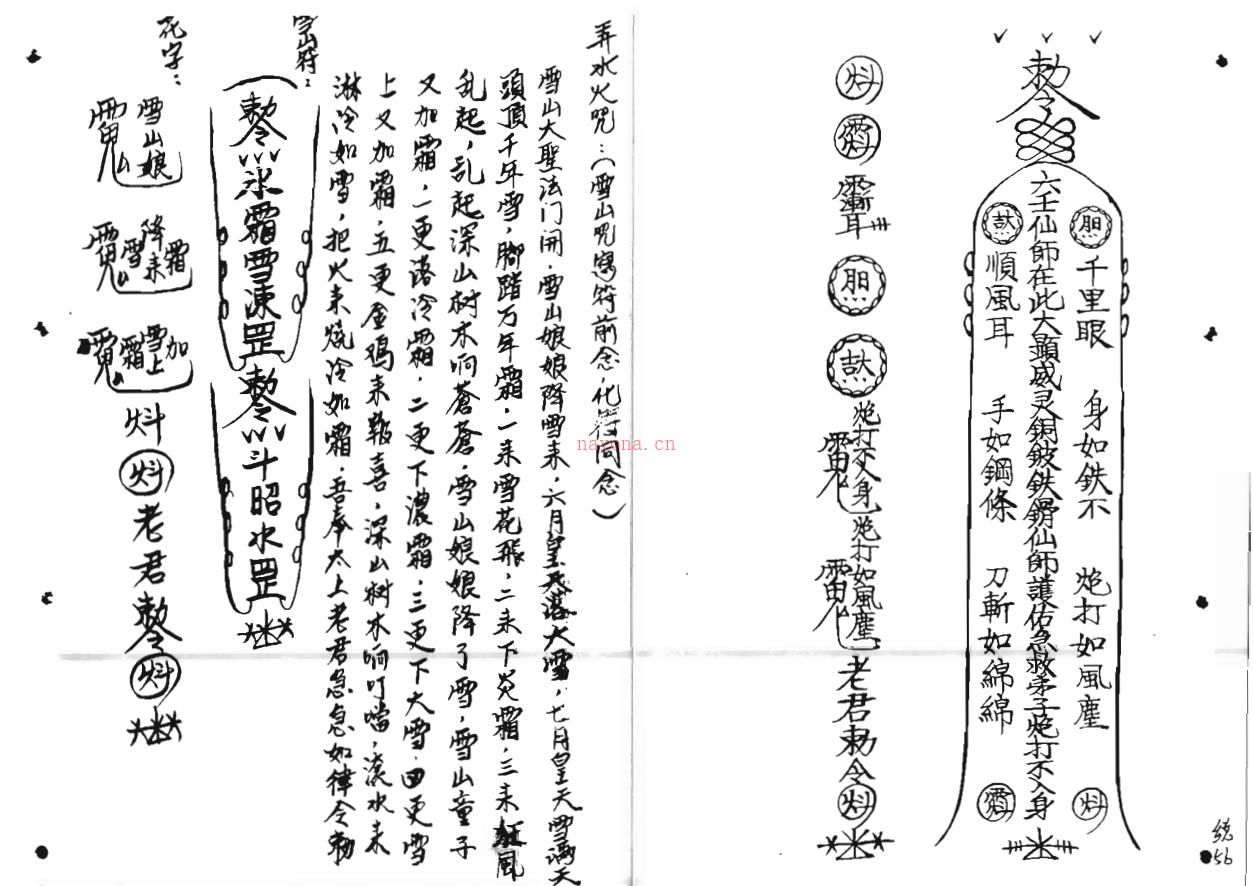 勅令
千里眼 身如鉄不 炮打如風塵
六壬仙師在此大顯威灵銅鈹鉄仙師護佑急救弟子炮打不入身
順風耳 手如鋼條 刀斬如綿綿
胆 炮打不入身 炮打如風塵 老君勅令
统56
弄水火咒:(雪山咒寫符前念化符同念)
雪山大聖法门開.雪山娘娘降雪来,六月皇天落大雪,七月皇天雪滿天
頭頂千年雪,脚踏万年霜,一来雪花飛,二来下炎霜,三来狂風
乱起,乱起深山树木响蒼蒼,雪山娘娘降了雪,雪山童子
又加霜,一更落冷霜,二更下濃霜,三更下大雪,四更雪
上又加霜,五更金鸡来報喜,深山树木响叮噹,滾水来
淋冷如雪,把火来燒冷如霜,吾奉太上老君急急如律令勅
雪山符:
勅令氷霜雪凍罡 勅令斗昭水罡
花字:
雪山娘 降雪来霜 雪上加霜 老君勅令
nayona.cn